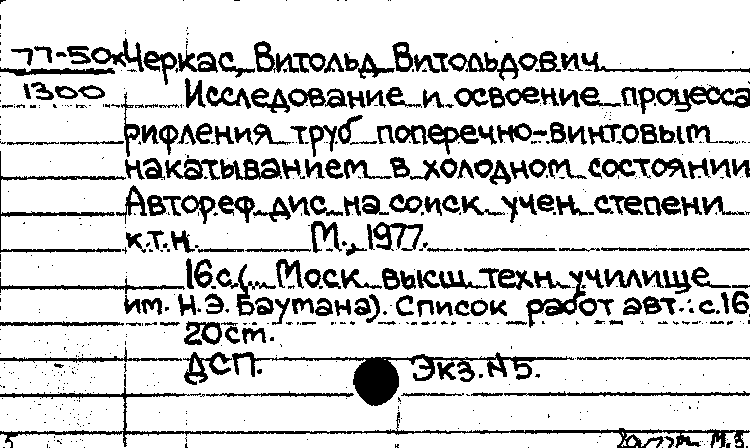 77-50к Черкас, Витольд Витольдович.
1300 Исследование и освоение процесса
рифления труб поперечно-винтовым
накатыванием в холодном состоянии
Автореф. дис. на соиск. учен. степени
к.т.н. М., 1977.
16 с. (Моск. высш. техн. училище
им. Н.Э. Баумана). Список работ авт.: с. 16
20 ст.
ДСП. Экз. N 5.